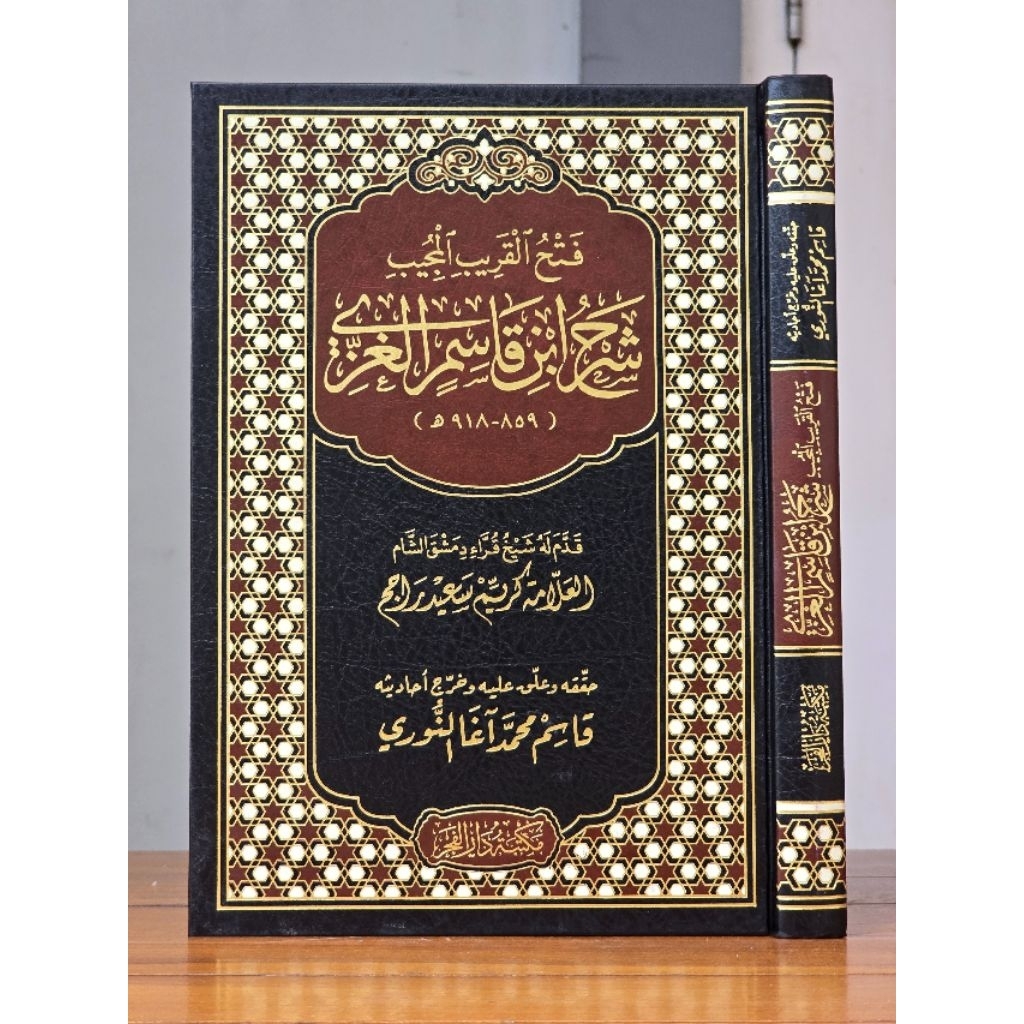 فَتْحُ ٱلْقَرِيبِ ٱلْمُجِيبِ
شَرْحُ ابْنِ قَاسِمٍ الغَزِّيِّ
(٨٥٩-٩١٨ هـ)
قَدَّمَ لَهُ شَيْخُ قُرَّاءِ دِمَشْقَ الشَّام
العَلَّامَة كُرَيِّمْ سَعِيْد رَاجِح
حقّقه وعلّق عليه وخرّج أحاديثه
قَاسِمْ مُحَمَّد آغَا النُّوري
مَكتَبَة دَارُ الفَجْر
حققه وعلق عليه وخرج أحاديثه
قَاسِم مُحَمَّد آغَا النُّوري
فَتْحُ ٱلْقَرِيبِ ٱلْمُجِيبِ
شَرْحُ ابْنِ قَاسِمٍ الغَزِّيِّ
مَكتَبَة دَارُ الفَجْر